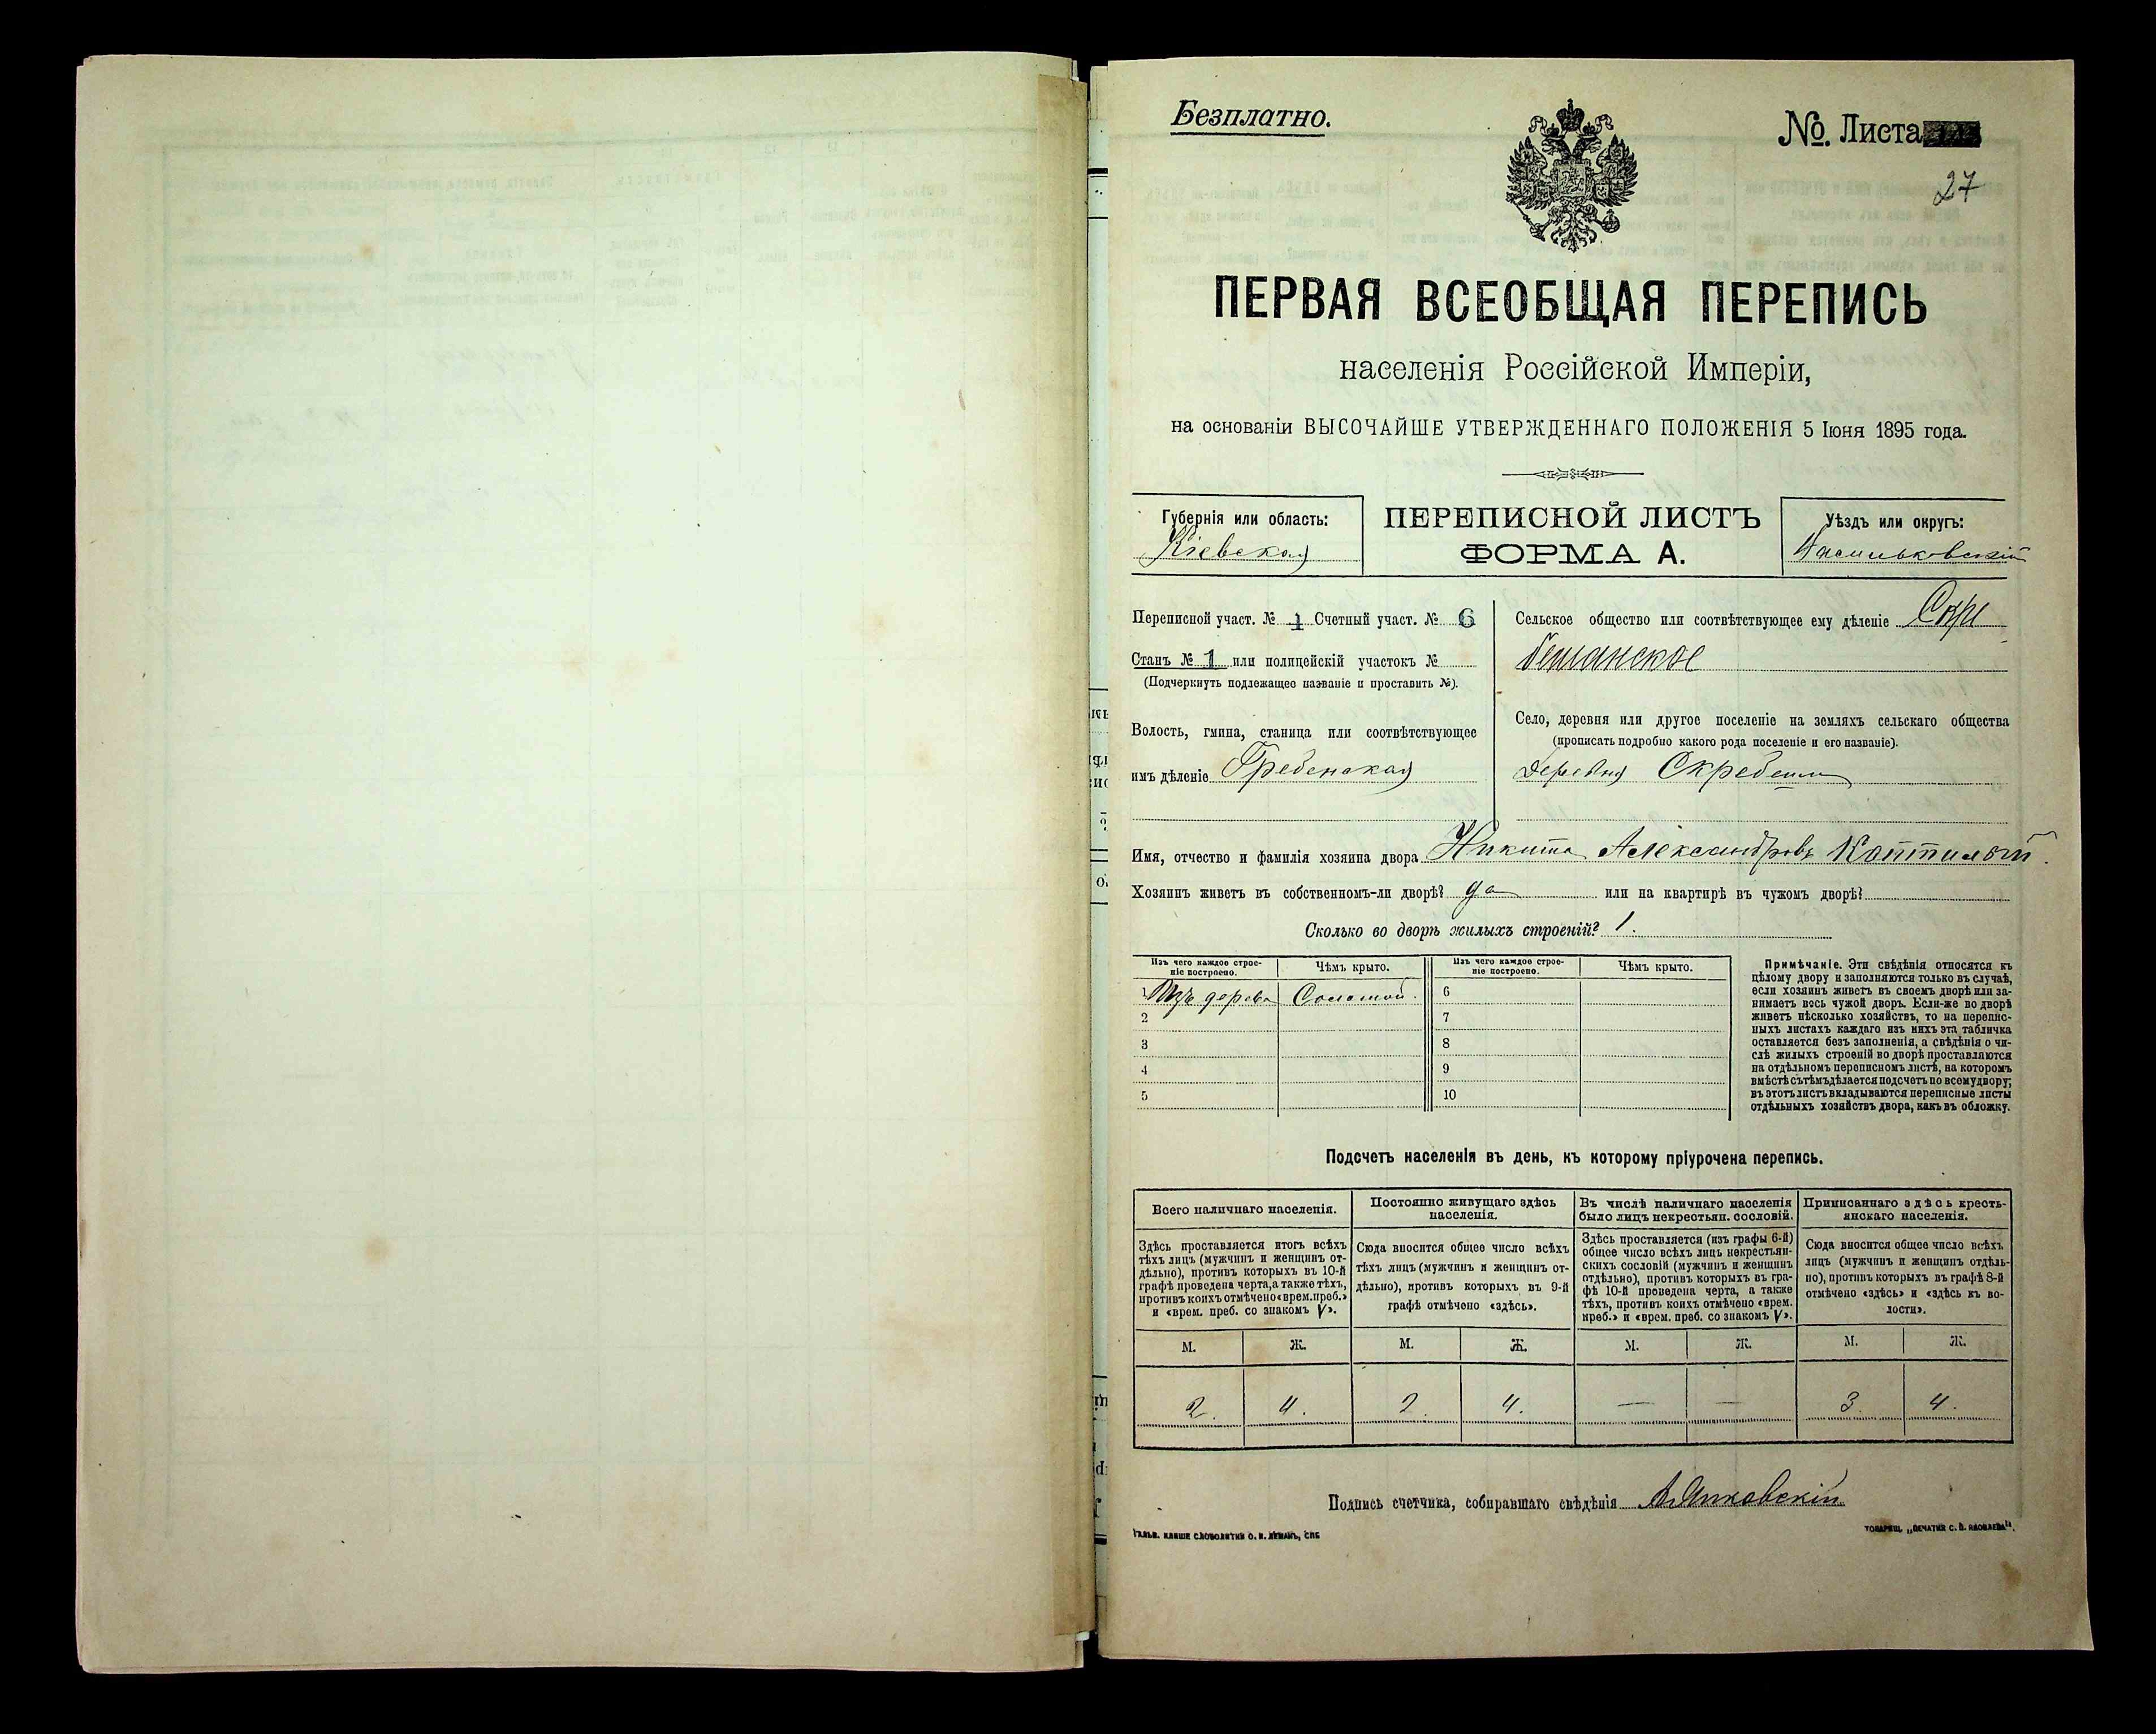 Безплатно.
№. Листа
27
ПЕРВАЯ ВСЕОБЩАЯ ПЕРЕПИСЬ
населенія Россійской Имперіи,
на основаніи ВЫСОЧАЙШЕ УТВЕРЖДЕННАГО ПОЛОЖЕНІЯ 5 Іюня 1895 года.
Губернія или область:
Кіевская
ПЕРЕПИСНОЙ ЛИСТЪ
ФОРМА А.
Уѣздъ или округъ:
Васильковскій
Переписной участ. № 1 Счетный участ. № 6
Станъ № 1 или полицейскій участокъ №
(Подчеркнуть подлежащее названіе и проставить №).
Волость, гмина, станица или соотвѣтствующее
имъ дѣленіе Гребенская
Сельское общество или соотвѣтствующее ему дѣленіе Скре
бешанское
Село, деревня или другое поселеніе на земляхъ сельскаго общества
(прописать подробно какого рода поселеніе и его названіе).
деревня Скребеши
Имя, отчество и фамилія хозяина двора Никита Александровъ
Хозяинъ живетъ въ собственномъ-ли дворѣ? да или на квартирѣ въ чужомъ дворѣ?
Сколько во дворѣ жилыхъ строеній? 1.
Изъ чего каждое строе-
ніе построено.
Чѣмъ крыто.
Изъ чего каждое строе-
ніе построено.
Чѣмъ крыто.
1 Изъ дерева Соломой. 6
2 7
3 8
4 9
5 10
Примѣчаніе. Эти свѣдѣнія относятся къ
цѣлому двору и заполняются только въ случаѣ,
если хозяинъ живетъ въ своемъ дворѣ или за-
нимаетъ весь чужой дворъ. Если-же во дворѣ
живетъ нѣсколько хозяйствъ, то на перепис-
ныхъ листахъ каждаго изъ нихъ эта табличка
оставляется безъ заполненія, а свѣдѣнія о чи-
слѣ жилыхъ строеній во дворѣ проставляются
на отдѣльномъ переписномъ листѣ, на которомъ
вмѣстѣ съ тѣмъ дѣлается подсчетъ по всему двору;
въ этотъ листъ вкладываются переписные листы
отдѣльныхъ хозяйствъ двора, какъ въ обложку.
Подсчетъ населенія въ день, къ которому пріурочена перепись.
Всего наличнаго населенія.
Здѣсь проставляется итогъ всѣхъ
тѣхъ лицъ (мужчинъ и женщинъ от-
дѣльно), противъ которыхъ въ 10-й
графѣ проведена черта, а также тѣхъ,
противъ коихъ отмѣчено «врем. преб.»
и «врем. преб. со знакомъ V».
Постоянно живущаго здѣсь
населенія.
Сюда вносится общее число всѣхъ
тѣхъ лицъ (мужчинъ и женщинъ от-
дѣльно), противъ которыхъ въ 9-й
графѣ отмѣчено «здѣсь».
Въ числѣ наличнаго населенія
было лицъ некрестьян. сословій.
Здѣсь проставляется (изъ графы 6-й)
общее число всѣхъ лицъ некрестьян-
скихъ сословій (мужчинъ и женщинъ
отдѣльно), противъ которыхъ въ гра-
фѣ 10-й проведена черта, а также
тѣхъ, противъ коихъ отмѣчено «врем.
преб.» и «врем. преб. со знакомъ V».
Приписаннаго здѣсь кресть-
янскаго населенія.
Сюда вносится общее число всѣхъ
лицъ (мужчинъ и женщинъ отдѣль-
но), противъ которыхъ въ графѣ 8-й
отмѣчено «здѣсь» и «здѣсь къ во-
лости».
М. Ж. М. Ж. М. Ж. М. Ж.
2. 4. 2. 4. — — 3. 4.
Подпись счетчика, собиравшаго свѣдѣнія
ГАЛЬВ. КЛИШЕ СЛОВОЛИТНИ О. И. ЛЕМАНЪ, СПБ
ТОВАРИЩ. „ПЕЧАТНЯ С. П. ЯКОВЛЕВА“.